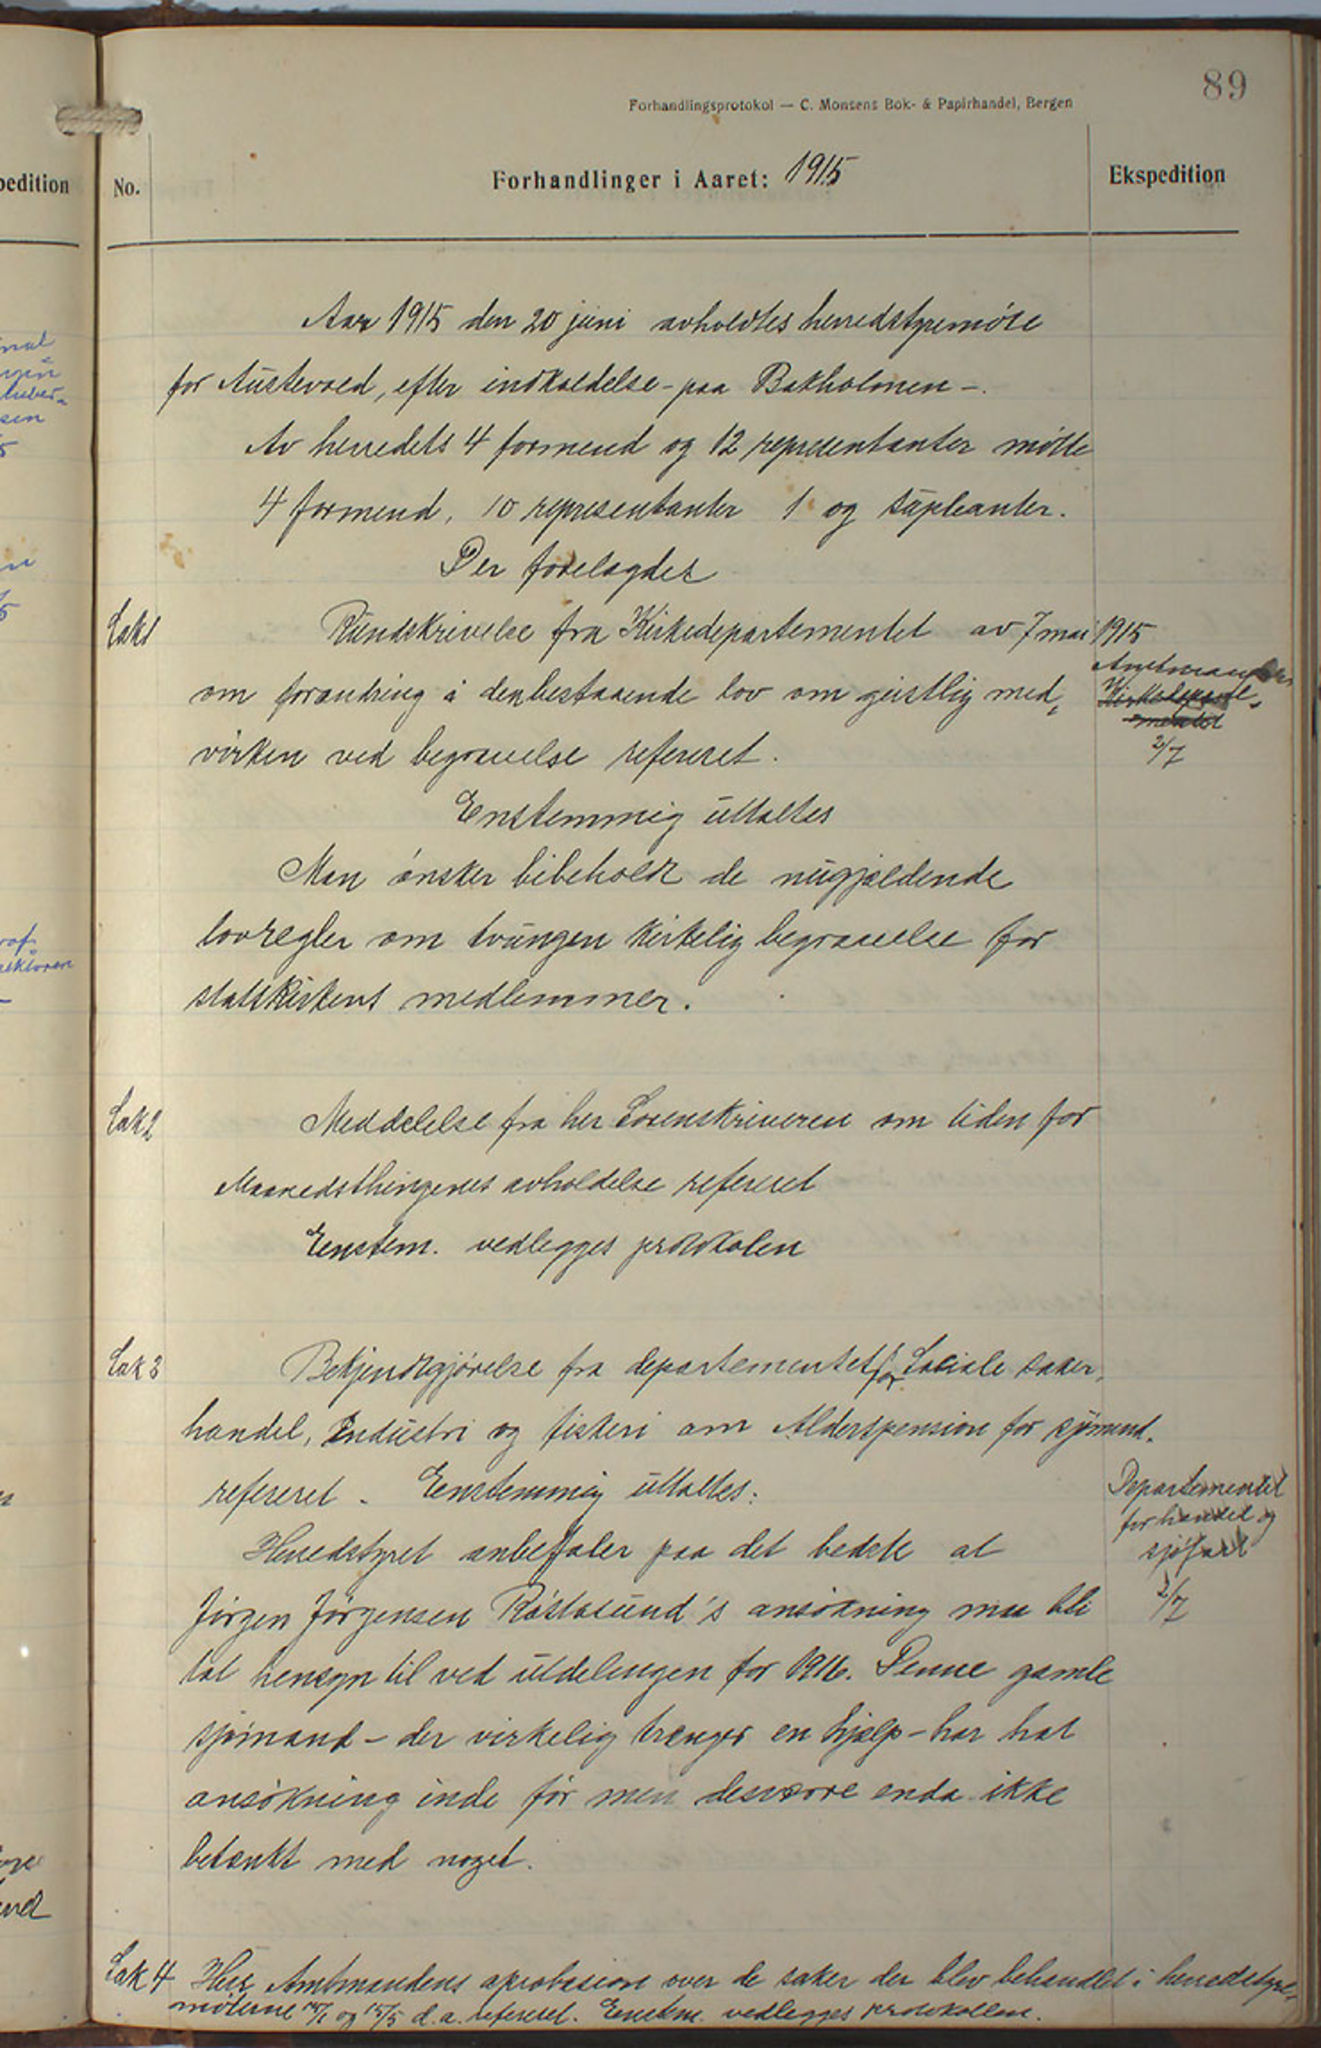 89
Forhandlingsprotokol — C. Monsens Bok- & Papirhandel, Bergen
pedition
No.
Forhandlinger i Aaret: 1915
Ekspedition
Aar 1915 den 20 juni avholdtes herredstyremøte
for Austevold, efter indkaldelse - paa Bakholmen -.
Av herredets 4 formend og 12 representanter møtte
4 formend, 10 representanter 1 og supleanter.
Der forelagdes
Sak 1
Rundskrivelse fra Kirkedepartementet av 7 mai 1915
om forandring i denbestaaende lov om geistlig med-
virken ved begravelse referert.
Amtmanden
Kirkedeparte-
mentet
2/7
Enstemmig uttaltes
Man ønsker bibeholdt de nugjældende
lovregler om tvungen kirkelig begravelse for
statskirkens medlemmer.
Sak 2
Meddelelse fra her Sorenskriveren om tiden for
Maanedsthingenes avholdelse refereret
Eenstem. vedlegges protokolen
Sak 3
Bekjendtgjørelse fra departementet for Sociale saker,
handel, Industri og fiskeri om Alderspension for sjømend.
refereret - Eenstemmig uttaltes:
Herredstyret anbefaler paa det bedste at
Jørgen Jørgensen Røstøsund's ansøkning maa bli
tat hensyn til ved utdelingen for 1916. Denne gamle
sjømand - der virkelig trænger en hjælp - har hat
ansøkning inde før men desværre enda ikke
betænkt med noget.
Departementet
for handel og
sjøfart
2/7
Sak 4 Herr Amtmandens aprobasion over de saker der blev behandlet i herredstyre-
møterne og 15/5 d.a. refereret. Eenstem. vedlegges protokollen.